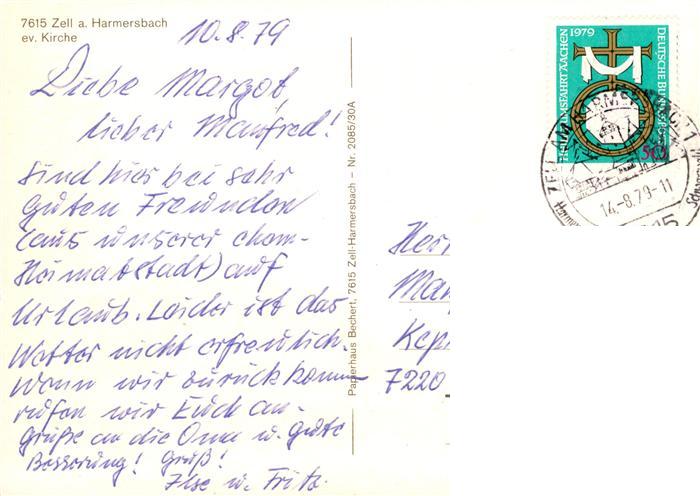 7615 Zell a. Harmersbach
ev. Kirche
10.8.79
Liebe Margot,
lieber Manfred!
Sind hier bei sehr
guten Freunden
(aus unserer ehem-
Heimatstadt) auf
Urlaub. Leider ist das
Wetter nicht erfreulich.
Wenn wir zurückkommen
rufen wir Euch an-
Grüße an die Oma u. gute
Besserung! Gruß!
Ilse u. Fritz.
Papierhaus Bechert, 7615 Zell-Harmersbach – Nr. 2085/30A
HEILIGTUMSFAHRT AACHEN 1979
DEUTSCHE BUNDESPOST
50
ZELL AM HARMERSBACH 1
14.-8.79-11
Herr
Man
Kep
7220